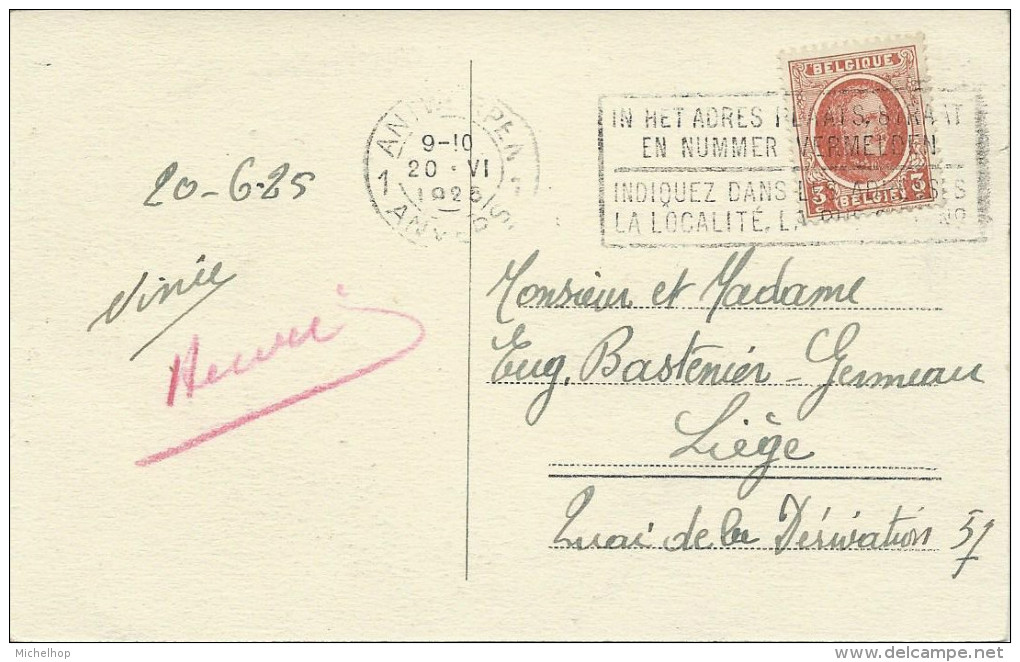 BELGIQUE
3 BELGIË 3
ANTWERPEN
9-10
20 · VI
1925
1 1
ANVERS
IN HET ADRES PLAATS, STRAAT
EN NUMMER VERMELDEN
INDIQUEZ DANS LES ADRESSES
LA LOCALITÉ, LA RUE ET LE Nº
20-6-25
Monsieur et Madame
Eug. Bastenier-Germeau
Liège
Quai de la Dérivation 57
Michelhop
delcampe.net